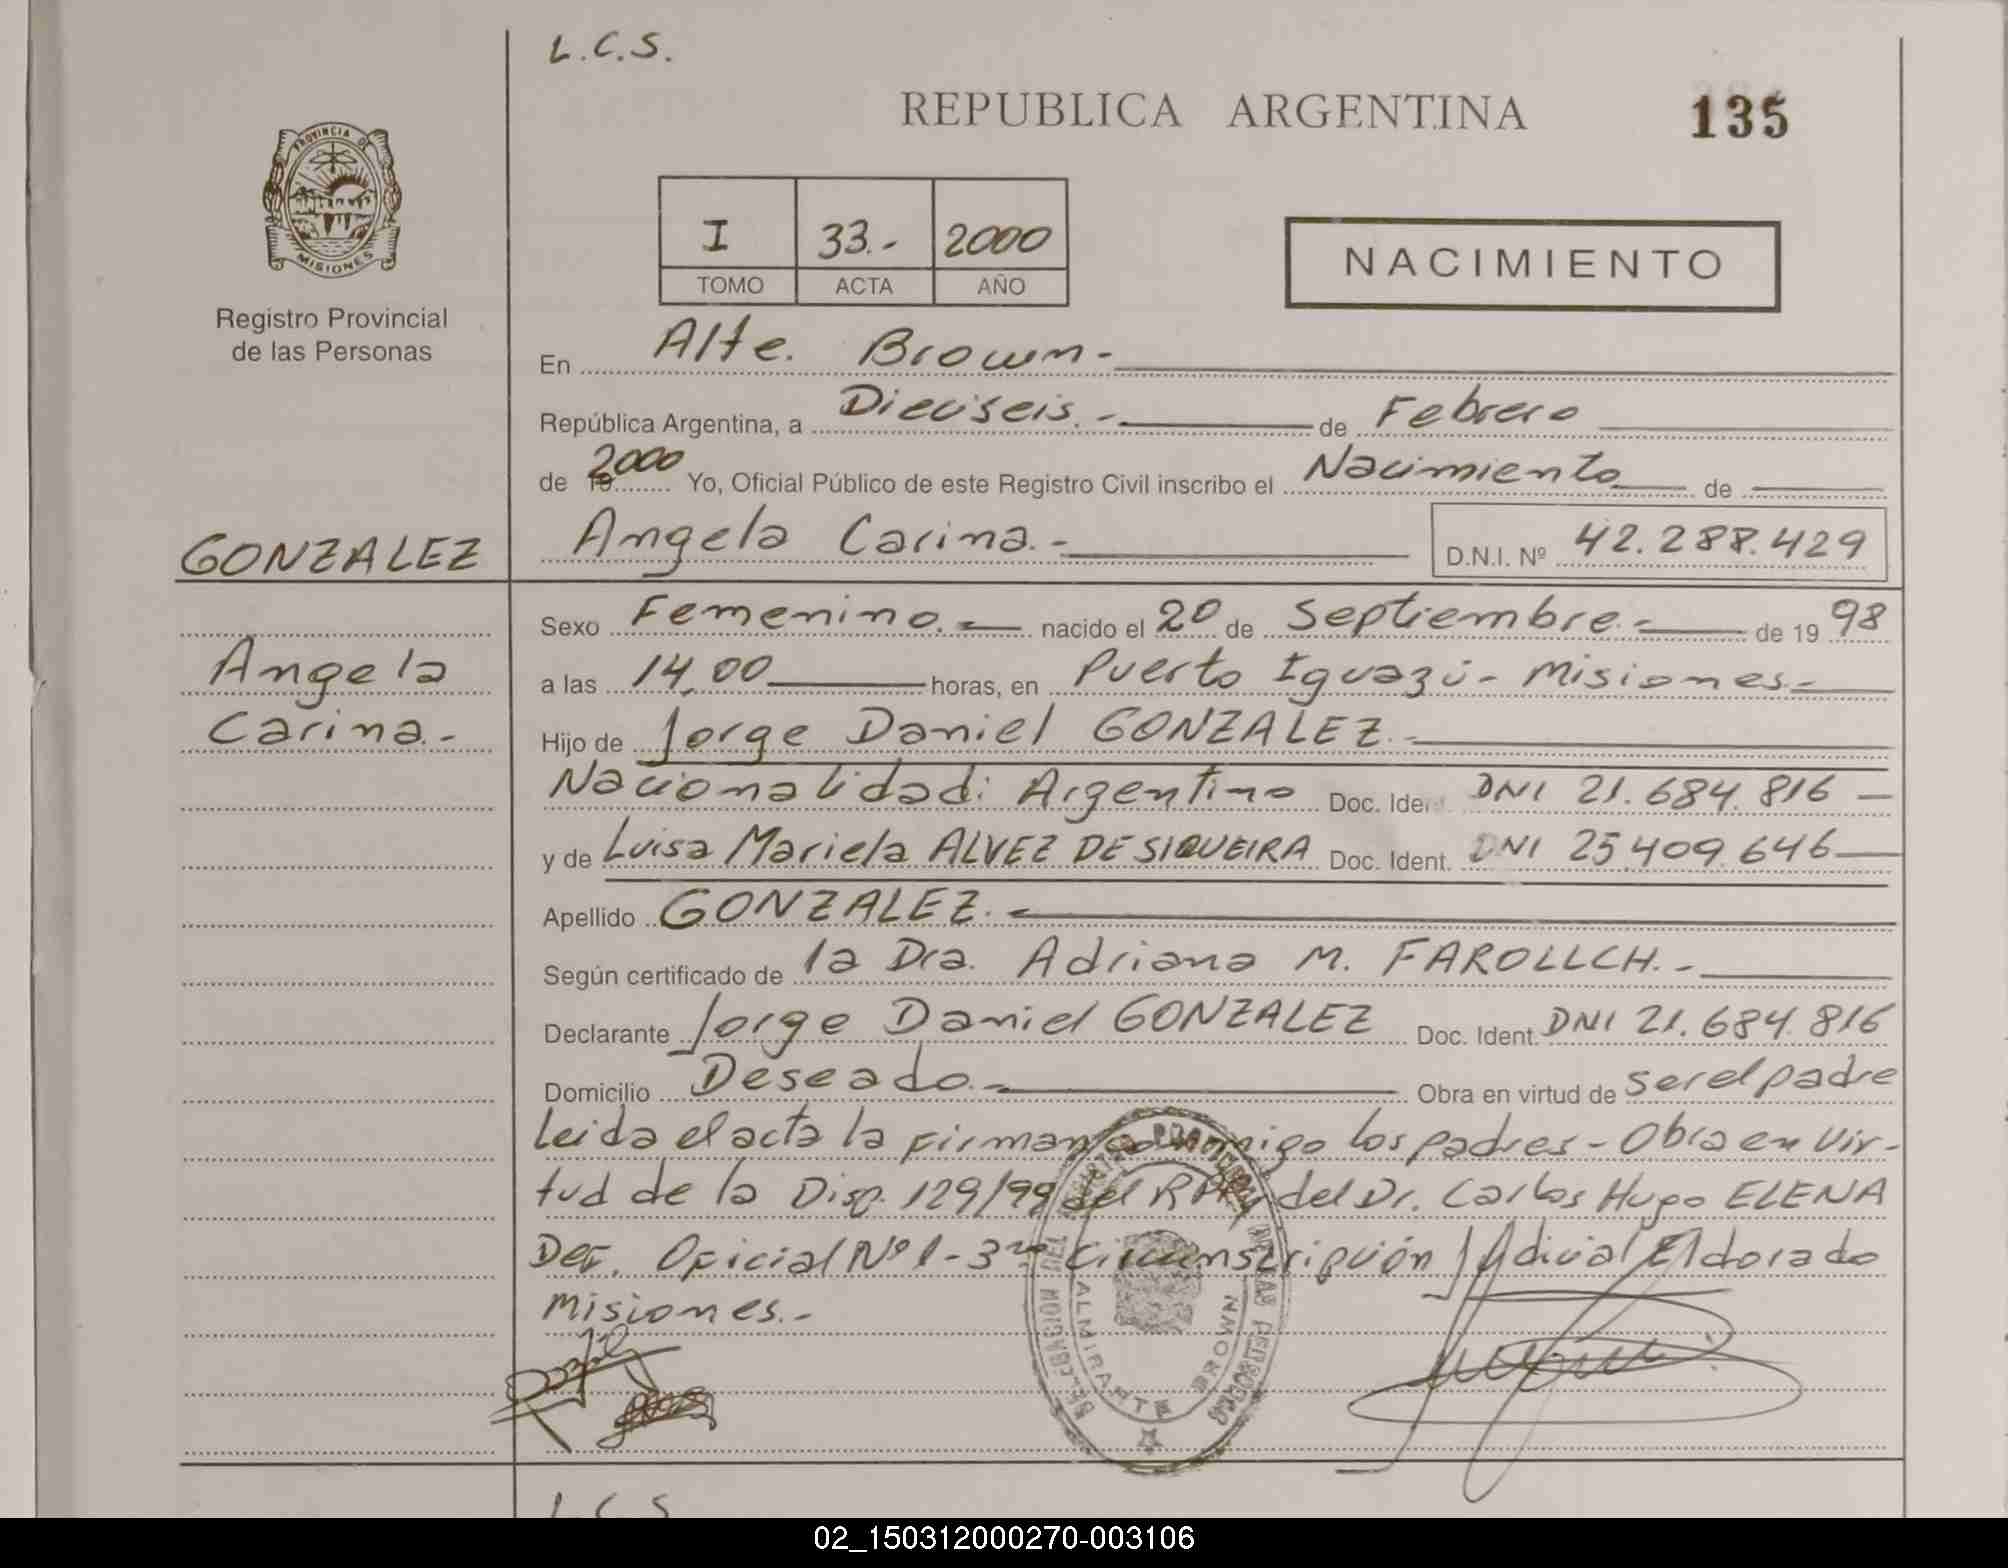 L.C.S.
REPUBLICA ARGENTINA
135
PROVINCIA DE
MISIONES
Registro Provincial
de las Personas
I 33.- 2000
TOMO ACTA AÑO
NACIMIENTO
En Alte. Brown.-
República Argentina, a Dieciseis.- de Febrero
de 2000 Yo, Oficial Público de este Registro Civil inscribo el Nacimiento de
GONZALEZ
Angela Carina.- D.N.I. Nº 42.288.429
Angela
Carina.-
Sexo Femenino.- nacido el 20 de Septiembre.- de 19 98
a las 14,00 horas, en Puerto Iguazú - Misiones.-
Hijo de Jorge Daniel GONZALEZ.-
Nacionalidad: Argentino Doc. Ident. DNI 21.684.816 -
y de Luisa Mariela ALVEZ DE SIQUEIRA Doc. Ident. DNI 25.409.646
Apellido GONZALEZ.-
Según certificado de la Dra. Adriana M. FAROLLCH.-
Declarante Jorge Daniel GONZALEZ Doc. Ident. DNI 21.684.816
Domicilio Deseado.- Obra en virtud de ser el padre
Leida el acta la firman conmigo los padres - Obra en vir-
tud de la Disp. 129/99 del RPP y del Dr. Carlos Hugo ELENA
Def. Oficial Nº 1 - 3ra Circunscripción Judicial Eldorado
Misiones.-
DELEGACION DEL REGISTRO PROVINCIAL DE LAS PERSONAS
ALMIRANTE BROWN
L.C.S
02_150312000270-003106